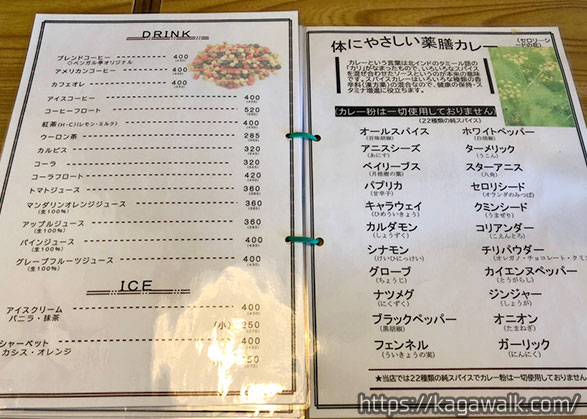 DRINK
ブレンドコーヒー 400
◇ベンガル亭オリジナル
アメリカンコーヒー 400
カフェオレ 400
アイスコーヒー 400
コーヒーフロート 520
紅茶(H・C)(レモン・ミルク) 400
ウーロン茶 285
カルピス 320
コーラ 320
コーラフロート 420
トマトジュース 360
マンダリンオレンジジュース 360
(生100%)
アップルジュース 360
(生100%)
パインジュース 400
(生100%)
グレープフルーツジュース 400
(生100%)
ICE
アイスクリーム 400
バニラ・抹茶 (小) 250
シャーベット 400
カシス・オレンジ 250
体にやさしい薬膳カレー
(セロリーシードの花)
カレーという言葉は北インドのタミール語の
「カリ」がなまったもので、いろいろなスパイス
を混ぜ合わせたソースというのが本来の意味
です。スパイスはいろいろな種類の香
辛料(漢方薬)の混合なので、健康の保持・ス
タミナ増進に役立ちます。
カレー粉は一切使用しておりません
(22種類の純スパイス)
オールスパイス ホワイトペッパー
(百味胡椒) (白胡椒)
アニスシーズ ターメリック
(あにす) (うこん)
ベイリーブス スターアニス
(月桂樹の葉) (八角)
パプリカ セロリシード
(甘辛子) (オランダのみつば)
キャラウェイ クミンシード
(ひめういきょう) (うまぜり)
カルダモン コリアンダー
(しょうずく) (こえんとろ)
シナモン チリパウダー
(けいひ・にっけい) (オレガノ・チョコレート・クミ
グローブ カイエンヌペッパー
(ちょうじ) (とうがらし)
ナツメグ ジンジャー
(にくずく) (しょうが)
ブラックペッパー オニオン
(黒胡椒) (たまねぎ)
フェンネル ガーリック
(ういきょうの実) (にんにく)
★当店では22種類の純スパイスでカレー粉は一切使用しており
https://kagawalk.com/